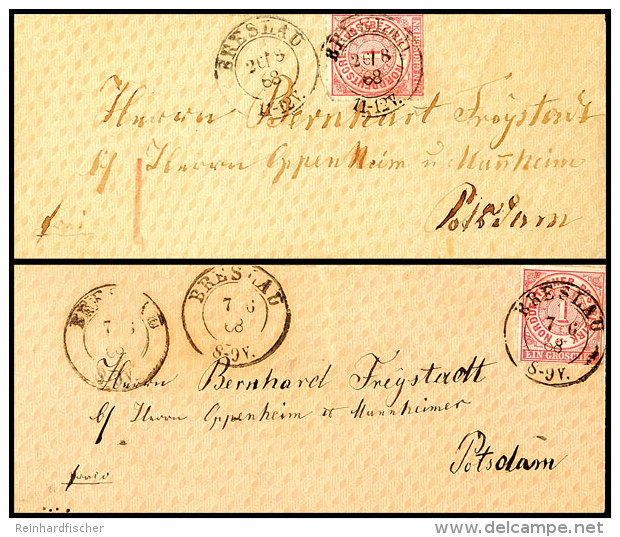 BRESLAU
2 6 8
68
11-12V.
BRESLAU
2 6 8
68
11-12V.
EIN GROSCHEN
Herrn Bernhart Freystadt
b/ Herrn Oppenheim u Mannheim
Potsdam
BRESLAU
7 6
68
8-9V.
BRESLAU
7 6
68
8-9V.
BRESLAU
7 6
68
8-9V.
1
NORDD
EIN GROSCHEN
Herrn Bernhard Freystadt
b/ Herrn Oppenheim & Mannheimer
Potsdam
franco
Reinhardfischer
delcampe.net